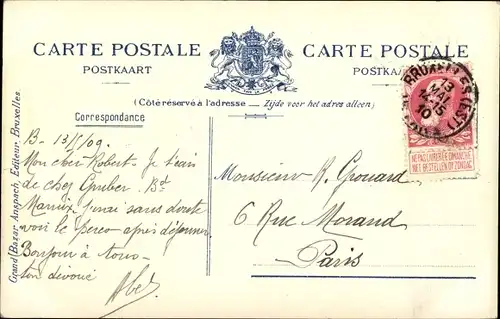 CARTE POSTALE
POSTKAART
CARTE POSTALE
POSTKAA
(Côté réservé à l'adresse — Zijde voor het adres alleen)
Correspondance
BRUXELLES (EST)
13
MAI
10
NE PAS LIVRER LE DIMANCHE
NIET BESTELLEN OP ZONDAG
B- 13/5/09.
Mon cher Robert. Je
de chez Gruber. Bd
sans doute
voir le après déjeuner
Bonjour à tous
ton dévoué
Abel
Monsieur R. Grouard
6 Rue Morand
Paris
Grand Bazar Anspach, Editeur, Bruxelles